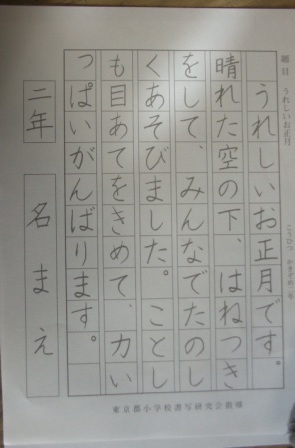 題目　うれしいお正月
こうひつ　かきぞめ二年
うれしいお正月です。
晴れた空の下、はねつき
をして、みんなでたのし
くあそびました。ことし
も目あてをきめて、力い
っぱいがんばります。
二年　名まえ
東京都小学校書写研究会指導